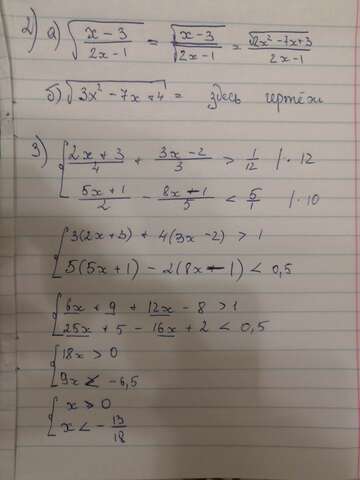 2) а) √((x-3)/(2x-1)) = √(x-3)/√(2x-1) = √(2x²-7x+3)/(2x-1)
б) √(3x²-7x+4) = здесь чертёж
3) { (2x+3)/4 + (3x-2)/3 > 1/12 | · 12
(5x+1)/2 - (8x-1)/5 < 5/1 | · 10
{ 3(2x+3) + 4(3x-2) > 1
5(5x+1) - 2(8x-1) < 0,5
{ 6x + 9 + 12x - 8 > 1
25x + 5 - 16x + 2 < 0,5
{ 18x > 0
9x < -6,5
{ x > 0
x < -13/18